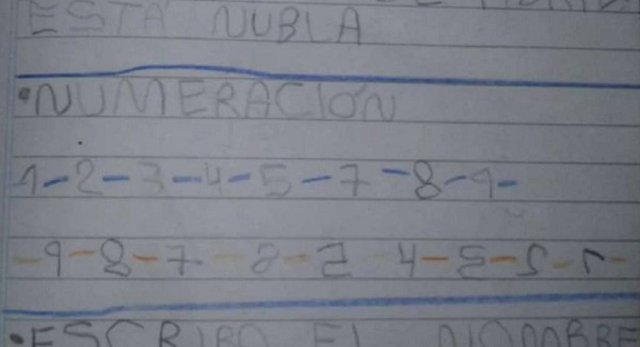 ESTÁ NUBLA
•NUMERACIÓN
1-2-3-4-5-7-8-9-
-9-8-7-6-5 4-3-2-1-
•ESCRIBO EL NOMBRE